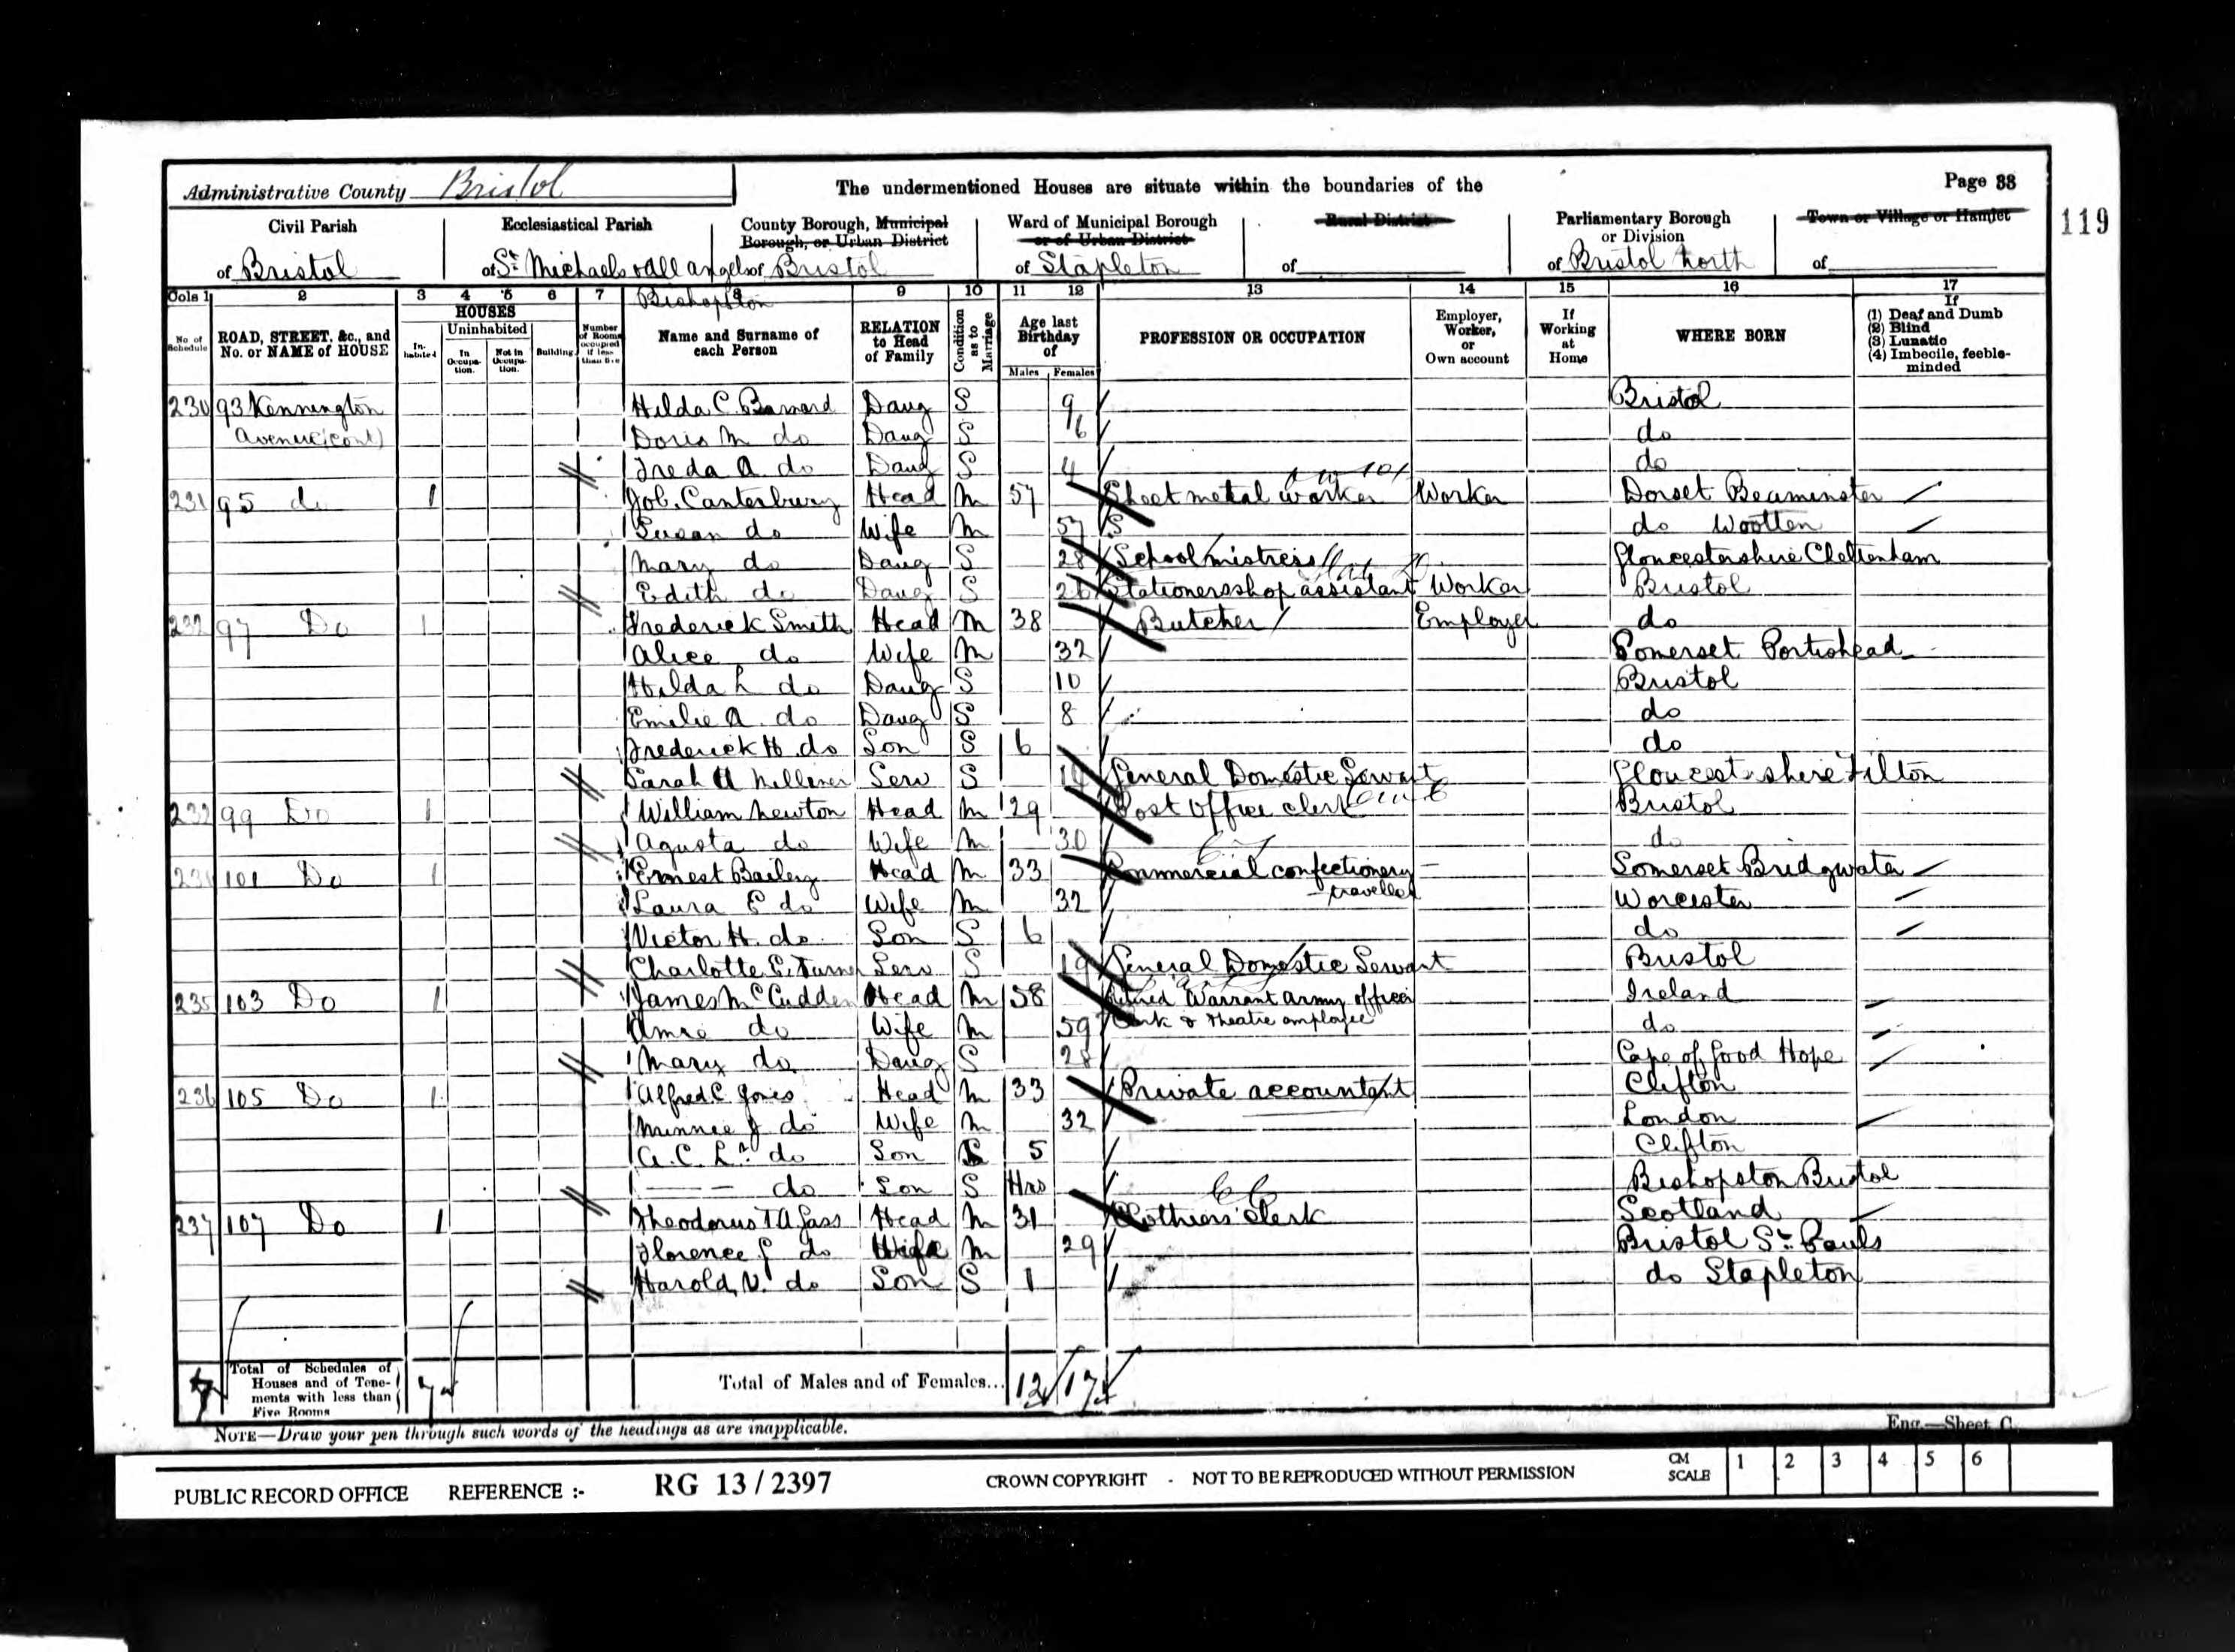 Administrative County Bristol
The undermentioned Houses are situate within the boundaries of the
Page 33
119
Civil Parish of Bristol
Ecclesiastical Parish of St Michaels & All angels
Bishopston
County Borough, Municipal Borough, or Urban District of Bristol
Ward of Municipal Borough or of Urban District of Stapleton
Rural District of
Parliamentary Borough or Division of Bristol North
Town or Village or Hamlet of
Cols 1 2 3 4 5 6 7 8 9 10 11 12 13 14 15 16 17
No of Schedule
ROAD, STREET, &c., and No. or NAME of HOUSE
HOUSES
Inhabited
Uninhabited
In Occupation.
Not in Occupation.
Building
Number of Rooms occupied if less than five
Name and Surname of each Person
RELATION to Head of Family
Condition as to Marriage
Age last Birthday of
Males Females
PROFESSION OR OCCUPATION
Employer, Worker, or Own account
If Working at Home
WHERE BORN
If
(1) Deaf and Dumb
(2) Blind
(3) Lunatic
(4) Imbecile, feeble-minded
230 93 Kennington Hilda C. Barnard Daug S 9 Bristol
Avenue (cont) Doris M do Daug S 6 do
Freda A do Daug S 4 do
231 95 do 1 Job. Canterbury Head M 57 Sheet metal worker Worker Dorset Beaminster
Susan do Wife M 57 do Wootten
Mary do Daug S 28 School mistress Gloucestershire Cheltenham
Edith do Daug S 26 Stationers shop assistant Worker Bristol
232 97 Do 1 Frederick Smith Head M 38 Butcher Employer do
Alice do Wife M 32 Somerset Portishead
Hilda L do Daug S 10 Bristol
Emilie A. do Daug S 8 do
Frederick H do Son S 6 do
Sarah A Serv S General Domestic Servant Gloucestershire Filton
99 Do 1 William Newton Head M 29 Post Office clerk Bristol
Agusta do Wife M 30 do
101 Do 1 Ernest Bailey Head M 33 Commercial confectionery Somerset Bridgwater
traveller
Laura E do Wife M 32 Worcester
Victor H. do Son S 6 do
Charlotte E. Turner Serv S 19 General Domestic Servant Bristol
235 103 Do 1 James McCudden Head M 58 Retired Warrant Army officer Ireland
Clerk & Theatre employee
do Wife M 59 do
Mary do Daug S 28 Cape of Good Hope
236 105 Do 1 Alfred C Jones Head M 33 Private accountant Clifton
Minnie J do Wife M 32 London
A. C. do Son S 5 Clifton
— — do Son S Hrs Bishopston Bristol
237 107 Do 1 Theodorus T A Gass Head M 31 Clothiers clerk Scotland
Florence do Wife M 29 Bristol St Pauls
Harold V. do Son S 1 do Stapleton
7 Total of Schedules of Houses and of Tenements with less than Five Rooms 7
Total of Males and of Females... 12 17
NOTE—Draw your pen through such words of the headings as are inapplicable.
Eng.—Sheet C.
PUBLIC RECORD OFFICE REFERENCE :- RG 13/2397
CROWN COPYRIGHT - NOT TO BE REPRODUCED WITHOUT PERMISSION
CM SCALE 1 2 3 4 5 6